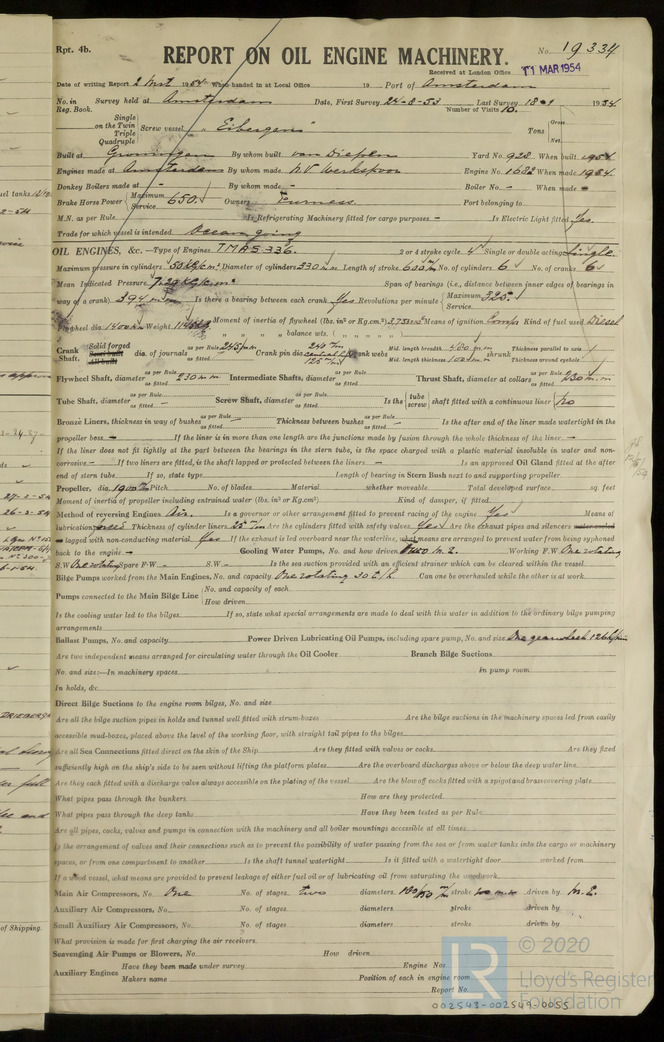 Rpt. 4b.
REPORT ON OIL ENGINE MACHINERY.
No. 19334
Received at London Office 11 MAR 1954
Date of writing Report 2 Mrt 1954 When handed in at Local Office 19 Port of Amsterdam
No. in Reg. Book. Survey held at Amsterdam Date, First Survey 24-8-53 Last Survey 1954
Number of Visits 10.
Single
on the Twin
Triple
Quadruple
Screw vessel "Eibergen"
Tons Gross
Net
Built at Groningen By whom built van Diepen Yard No. 928 When built 1954
Engines made at Amsterdam By whom made N.V. Werkspoor Engine No. 1682 When made 1954
Donkey Boilers made at - By whom made - Boiler No. - When made -
Brake Horse Power Maximum Service 650 Owners Furness. Port belonging to
M.N. as per Rule Is Refrigerating Machinery fitted for cargo purposes - Is Electric Light fitted Yes.
Trade for which vessel is intended Ocean going
OIL ENGINES, &c. —Type of Engines TMAS 336. 2 or 4 stroke cycle 4 Single or double acting Single.
Maximum pressure in cylinders 50 kg/cm² Diameter of cylinders 330 mm Length of stroke 600 m/m No. of cylinders 6 No. of cranks 6
Mean Indicated Pressure 7.29 kg/cm² Span of bearings (i.e., distance between inner edges of bearings in
way of a crank) 394 mm Is there a bearing between each crank Yes Revolutions per minute Maximum Service 325.
Flywheel dia. 1400 mm Weight Moment of inertia of flywheel (lbs. in² or Kg.cm²) Means of ignition Comp. Kind of fuel used Diesel
" " " balance wts. ( " " " " )
Crank Shaft. Solid forged Semi built All built dia. of journals as per Rule as fitted 245 mm Crank pin dia. Crank webs Mid. length breadth 400 mm Mid. length thickness 100 mm shrunk Thickness parallel to axis Thickness around eyehole
Flywheel Shaft, diameter as per Rule as fitted 230 mm Intermediate Shafts, diameter as per Rule as fitted Thrust Shaft, diameter at collars as per Rule as fitted 230 mm
Tube Shaft, diameter as per Rule as fitted - Screw Shaft, diameter as per Rule as fitted Is the tube screw shaft fitted with a continuous liner No
Bronze Liners, thickness in way of bushes as per Rule as fitted - Thickness between bushes as per Rule as fitted - Is the after end of the liner made watertight in the
propeller boss - If the liner is in more than one length are the junctions made by fusion through the whole thickness of the liner -
If the liner does not fit tightly at the part between the bearings in the stern tube, is the space charged with a plastic material insoluble in water and non-
corrosive - If two liners are fitted, is the shaft lapped or protected between the liners - Is an approved Oil Gland fitted at the after
end of stern tube If so, state type Length of bearing in Stern Bush next to and supporting propeller
Propeller, dia. 1900 m/m Pitch No. of blades Material whether moveable Total developed surface sq. feet
Moment of inertia of propeller including entrained water (lbs. in² or Kg.cm²) Kind of damper, if fitted
Method of reversing Engines Air. Is a governor or other arrangement fitted to prevent racing of the engine Yes Means of
lubrication forced Thickness of cylinder liners 25 m/m Are the cylinders fitted with safety valves Yes Are the exhaust pipes and silencers water cooled
or lagged with non-conducting material Yes If the exhaust is led overboard near the waterline, what means are arranged to prevent water from being syphoned
back to the engine - Cooling Water Pumps, No. and how driven M.E. Working F.W. One rotating
S.W. One rotating Spare F.W. - S.W. - Is the sea suction provided with an efficient strainer which can be cleared within the vessel
Bilge Pumps worked from the Main Engines, No. and capacity One rotating 30 t/h Can one be overhauled while the other is at work
Pumps connected to the Main Bilge Line No. and capacity of each
How driven
Is the cooling water led to the bilges If so, state what special arrangements are made to deal with this water in addition to the ordinary bilge pumping
arrangements
Ballast Pumps, No. and capacity Power Driven Lubricating Oil Pumps, including spare pump, No. and size
Are two independent means arranged for circulating water through the Oil Cooler Branch Bilge Suctions
No. and size:—In machinery spaces In pump room
In holds, &c.
Direct Bilge Suctions to the engine room bilges, No. and size
Are all the bilge suction pipes in holds and tunnel well fitted with strum-boxes Are the bilge suctions in the machinery spaces led from easily
accessible mud-boxes, placed above the level of the working floor, with straight tail pipes to the bilges
Are all Sea Connections fitted direct on the skin of the Ship Are they fitted with valves or cocks Are they fixed
sufficiently high on the ship's side to be seen without lifting the platform plates Are the overboard discharges above or below the deep water line
Are they each fitted with a discharge valve always accessible on the plating of the vessel Are the blow off cocks fitted with a spigot and brass covering plate
What pipes pass through the bunkers How are they protected
What pipes pass through the deep tanks Have they been tested as per Rule
Are all pipes, cocks, valves and pumps in connection with the machinery and all boiler mountings accessible at all times
Is the arrangement of valves and their connections such as to prevent the possibility of water passing from the sea or from water tanks into the cargo or machinery
spaces, or from one compartment to another Is the shaft tunnel watertight Is it fitted with a watertight door worked from
If a wood vessel, what means are provided to prevent leakage of either fuel oil or of lubricating oil from saturating the woodwork
Main Air Compressors, No. One No. of stages two diameters stroke driven by M.E.
Auxiliary Air Compressors, No. No. of stages diameters stroke driven by
Small Auxiliary Air Compressors, No. No. of stages diameters stroke driven by
What provision is made for first charging the air receivers
Scavenging Air Pumps or Blowers, No. How driven
Auxiliary Engines Have they been made under survey Engine Nos.
Makers name Position of each in engine room
Report No.
LR © 2020
Lloyd's Register
Foundation
002543-002549-0055
of Shipping.